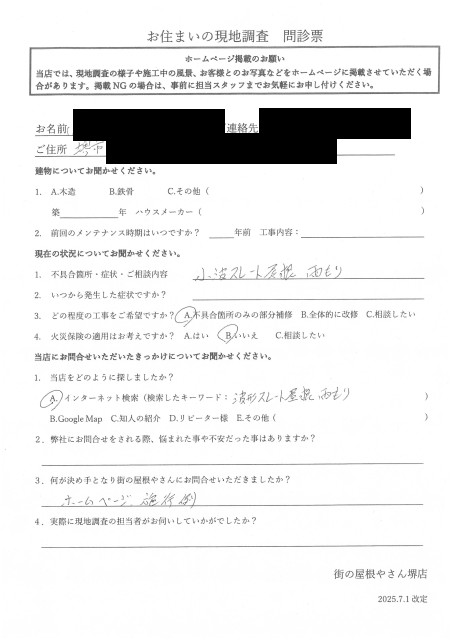 お住まいの現地調査　問診票
ホームページ掲載のお願い
当店では、現地調査の様子や施工中の風景、お客様とのお写真などをホームページに掲載させていただく場
合があります。掲載 NG の場合は、事前に担当スタッフまでお気軽にお申し付けください。
お名前　連絡先
ご住所　堺市
建物についてお聞かせください。
1.　A.木造　B.鉄骨　C.その他（　）
築　年　ハウスメーカー（　）
2.　前回のメンテナンス時期はいつですか？　年前　工事内容：
現在の状況についてお聞かせください。
1.　不具合箇所・症状・ご相談内容　小波スレート屋根 雨もり
2.　いつから発生した症状ですか？
3.　どの程度の工事をご希望ですか？　A.不具合箇所のみの部分補修　B.全体的に改修　C.相談したい
4.　火災保険の適用はお考えですか？　A.はい　B.いいえ　C.相談したい
当店にお問合せいただいたきっかけについてお聞かせください。
1.　当店をどのように探しましたか？
A.インターネット検索（検索したキーワード：波形スレート屋根 雨もり　）
B.Google Map　C.知人の紹介　D.リピーター様　E.その他（　）
2．弊社にお問合せをされる際、悩まれた事や不安だった事はありますか？
3．何が決め手となり街の屋根やさんにお問合せいただきましたか？
ホームページ 施行例
4．実際に現地調査の担当者がお伺いしていかがでしたか？
街の屋根やさん堺店
2025.7.1 改定